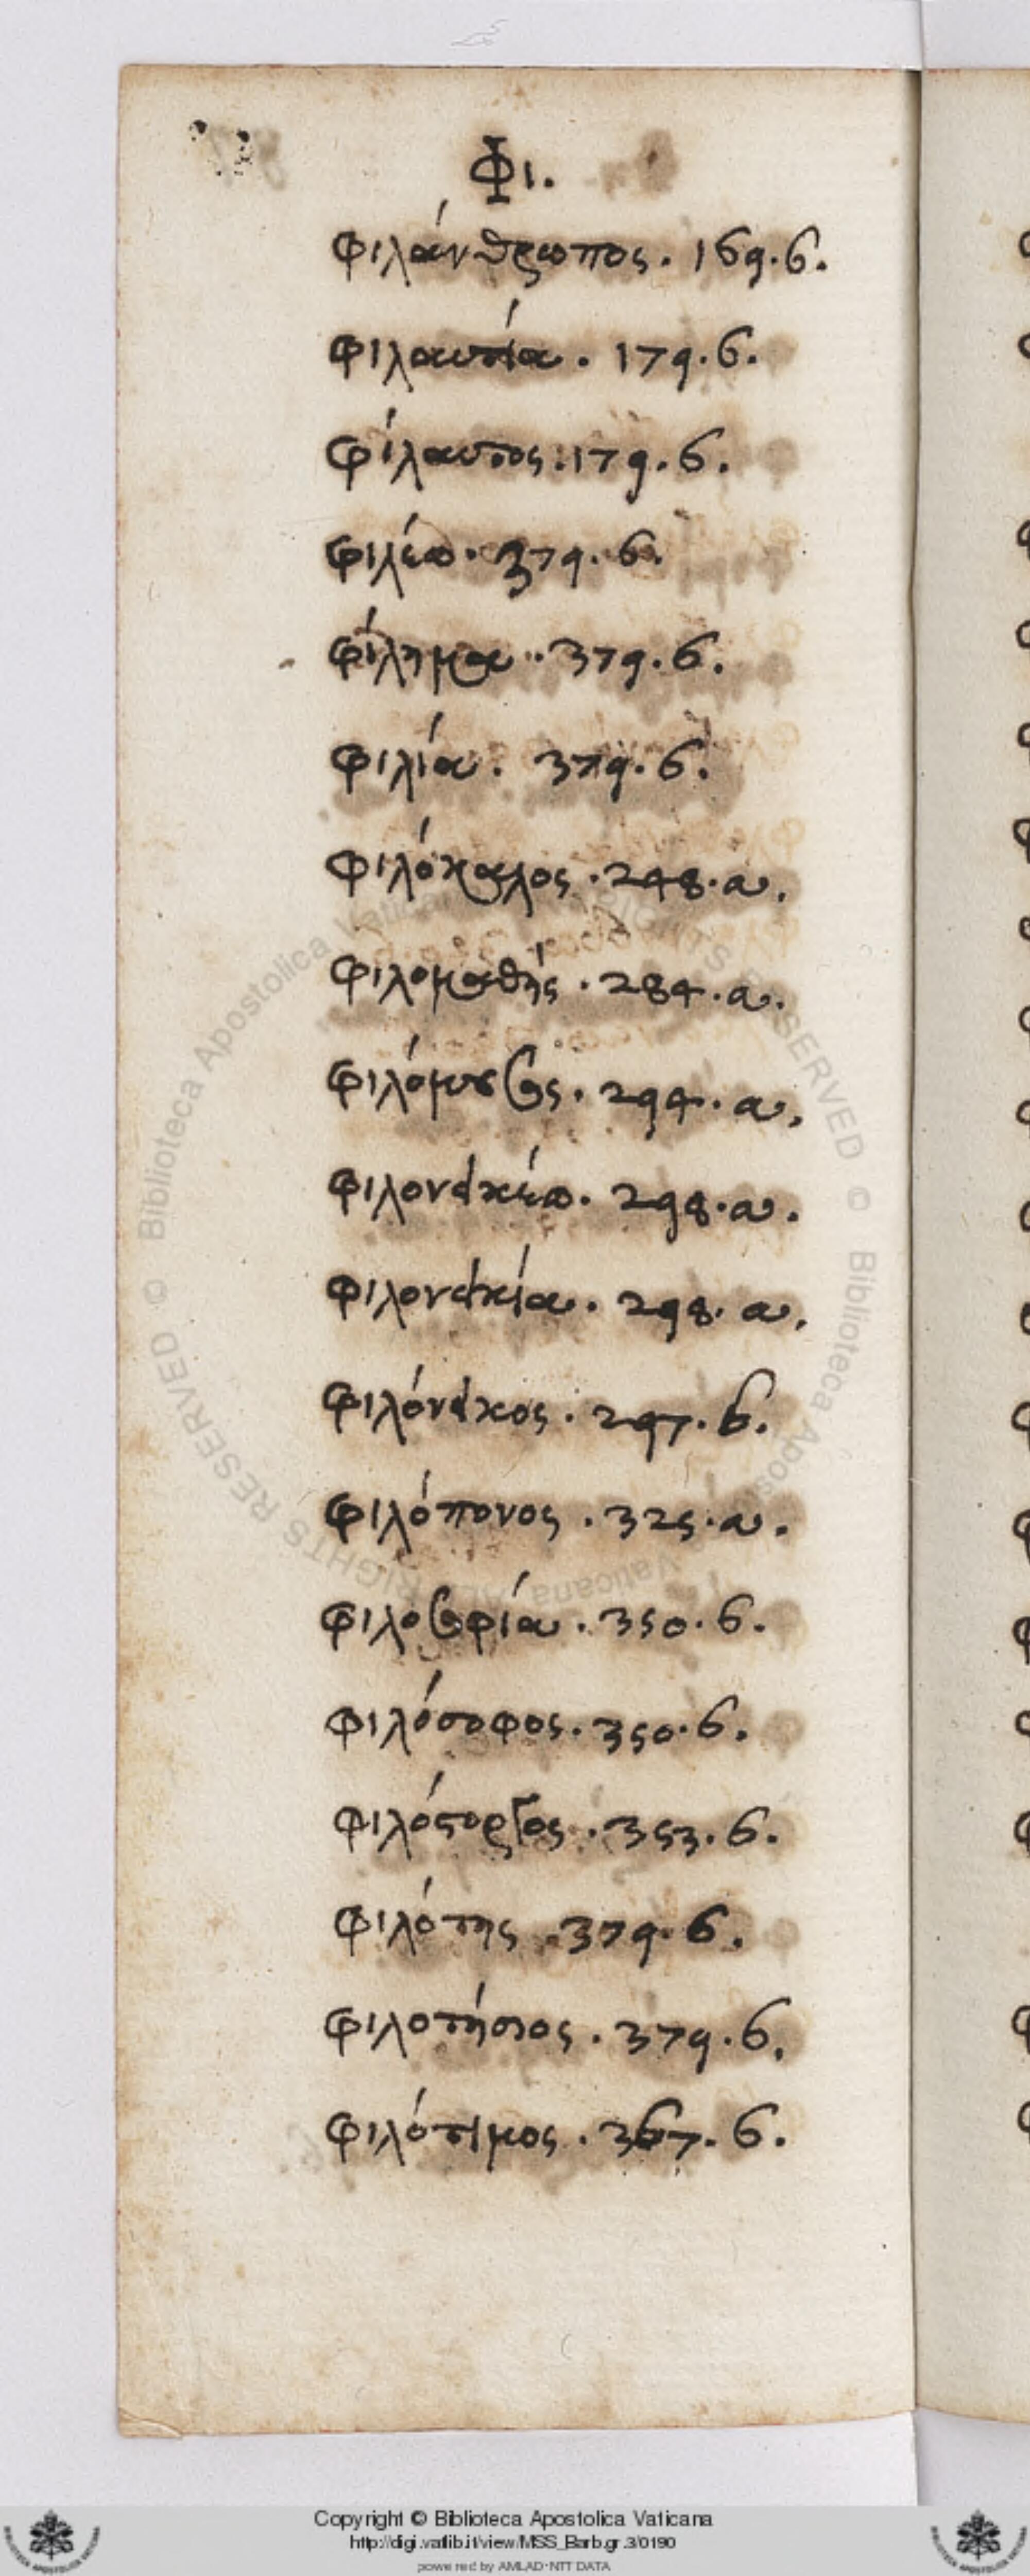 Φι.
φιλάνθρωπος. 169. b.
φιλαυτία. 179. b.
φίλαυτος. 179. b.
φιλέω. 379. b.
φίλημα. 379. b.
φιλία. 379. b.
φιλόκαλος. 248. a.
φιλομαθής. 284. a.
φιλόμουσος. 294. a.
φιλονεικέω. 298. a.
φιλονεικία. 298. a.
φιλόνεικος. 297. b.
φιλόπονος. 325. a.
φιλοσοφία. 350. b.
φιλόσοφος. 350. b.
φιλόστοργος. 353. b.
φιλότης. 379. b.
φιλοτήσιος. 379. b.
φιλότιμος. 367. b.
Copyright © Biblioteca Apostolica Vaticana
http://digi.vatlib.it/view/MSS_Barb.gr.3/0190
powered by AMLAD-NTT DATA